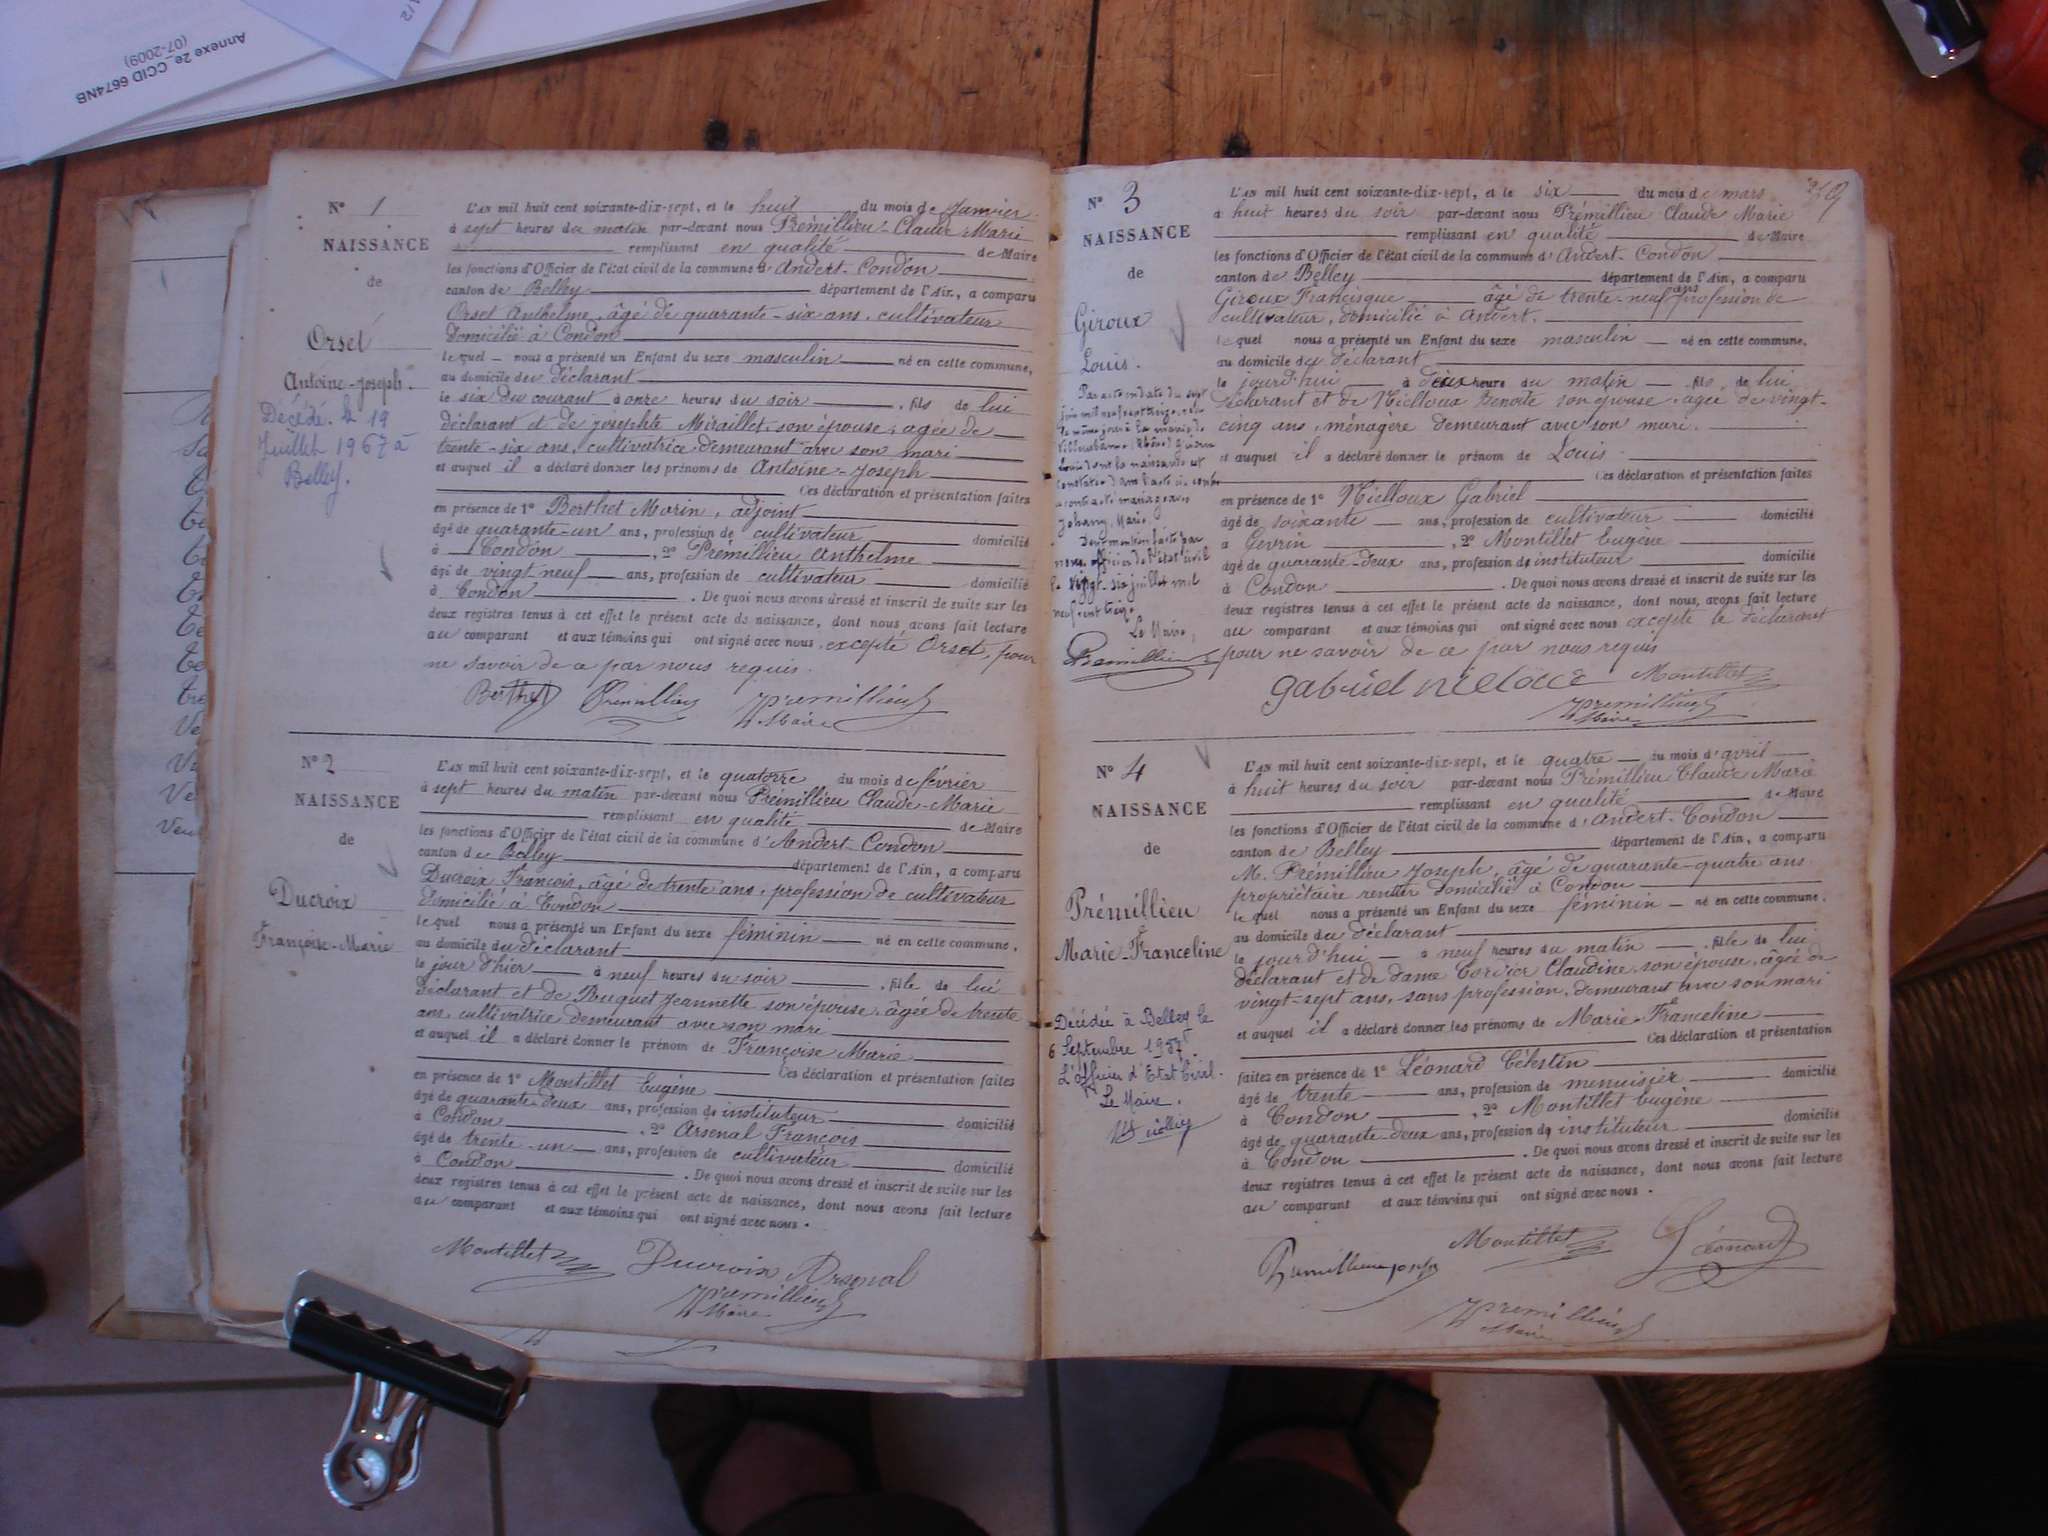 Annexe 2e_ CCID 6674NB
(07-2009)
N° 1
NAISSANCE
de
Orset
Antoine-Joseph.
Décédé le 19
Juillet 1967 à
Belley.
L'AN mil huit cent soixante-dix-sept, et le huit du mois de Janvier
à sept heures du matin par-devant nous Prémillieu Claude Marie
remplissant en qualité de Maire
les fonctions d'Officier de l'état civil de la commune d'Andert-Condon
canton de Belley département de l'Ain, a comparu
Orset Anthelme, âgé de quarante-six ans, cultivateur
domicilié à Condon
lequel nous a présenté un Enfant du sexe masculin né en cette commune,
au domicile du déclarant
le six du courant à onze heures du soir, fils de lui
déclarant et de Josephte Miraillet, son épouse, agée de
trente-six ans, cultivatrice, demeurant avec son mari
et auquel il a déclaré donner les prénoms de Antoine-Joseph
Ces déclaration et présentation faites
en présence de 1° Berthet Marin, adjoint
âgé de quarante-un ans, profession de cultivateur domicilié
à Condon, 2° Prémillieu Anthelme
âgé de vingt-neuf ans, profession de cultivateur domicilié
à Condon. De quoi nous avons dressé et inscrit de suite sur les
deux registres tenus à cet effet le présent acte de naissance, dont nous avons fait lecture
au comparant et aux témoins qui ont signé avec nous, excepté Orset, pour
ne savoir de ce par nous requis.
Berthet Prémillieu Premillieu
Maire
N° 2
NAISSANCE
de
Ducroix
Françoise-Marie
L'AN mil huit cent soixante-dix-sept, et le quatorze du mois de février
à sept heures du matin par-devant nous Prémillieu Claude-Marie
remplissant en qualité de Maire
les fonctions d'Officier de l'état civil de la commune d'Andert-Condon
canton de Belley département de l'Ain, a comparu
Ducroix François, âgé de trente ans, profession de cultivateur
domicilié à Condon
lequel nous a présenté un Enfant du sexe féminin né en cette commune,
au domicile du déclarant
le jour d'hier à neuf heures du soir, fille de lui
déclarant et de Buquet Jeannette son épouse, âgée de trente
ans, cultivatrice demeurant avec son mari
et auquel il a déclaré donner le prénom de Françoise Marie
Ces déclaration et présentation faites
en présence de 1° Montillet Eugène
âgé de quarante-deux ans, profession de instituteur domicilié
à Condon, 2° Arsenal François
âgé de trente-un ans, profession de cultivateur domicilié
à Condon. De quoi nous avons dressé et inscrit de suite sur les
deux registres tenus à cet effet le présent acte de naissance, dont nous avons fait lecture
au comparant et aux témoins qui ont signé avec nous.
Montillet Ducroix Arsenal
Premillieu
Maire
N° 3
NAISSANCE
de
Giroux
Louis.
Par acte en date du sept
Johany, Marie
Dont mention faite par
nous, officier de l'état civil
le vingt-six juillet mil
neuf cent treize
Le Maire,
Prémillieu
L'AN mil huit cent soixante-dix-sept, et le six du mois de mars
à huit heures du soir par-devant nous Prémillieu Claude Marie
remplissant en qualité de Maire
les fonctions d'Officier de l'état civil de la commune d'Andert-Condon
canton de Belley département de l'Ain, a comparu
Giroux Francisque âgé de trente-neuf ans profession de
cultivateur, domicilié à Andert.
lequel nous a présenté un Enfant du sexe masculin né en cette commune,
au domicile du déclarant
le jourd'hui à deux heure du matin, fils de lui
déclarant et de Nielloux Benoite son épouse, agée de vingt-
cinq ans, ménagère demeurant avec son mari.
et auquel il a déclaré donner le prénom de Louis
Ces déclaration et présentation faites
en présence de 1° Nielloux Gabriel
âgé de soixante ans, profession de cultivateur domicilié
à Gevrin, 2° Montillet Eugène
âgé de quarante-deux ans, profession de instituteur domicilié
à Condon. De quoi nous avons dressé et inscrit de suite sur les
deux registres tenus à cet effet le présent acte de naissance, dont nous avons fait lecture
au comparant et aux témoins qui ont signé avec nous excepté le déclarant
pour ne savoir de ce par nous requis
Montillet
Premillieu
Maire
N° 4
NAISSANCE
de
Prémillieu
Marie-Franceline
Décédée à Belley le
6 Septembre 1957.
L'officier d'Etat Civil.
Le Maire,
L'AN mil huit cent soixante-dix-sept, et le quatre du mois d'avril
à huit heures du soir par-devant nous Prémillieu Claude Marie
remplissant en qualité de Maire
les fonctions d'Officier de l'état civil de la commune d'Andert-Condon
canton de Belley département de l'Ain, a comparu
M. Prémillieu Joseph, âgé de quarante-quatre ans
propriétaire rentier domicilié à Condon
lequel nous a présenté un Enfant du sexe féminin né en cette commune,
au domicile du déclarant
le jourd'hui à neuf heures du matin, fille de lui
déclarant et de dame Cordier Claudine, son épouse, âgée de
vingt-sept ans, sans profession, demeurant avec son mari
et auquel il a déclaré donner les prénoms de Marie-Franceline
Ces déclaration et présentation
faites en présence de 1° Léonard Célestin
âgé de trente ans, profession de menuisier domicilié
à Condon, 2° Montillet Eugène
âgé de quarante-deux ans, profession de instituteur domicilié
à Condon. De quoi nous avons dressé et inscrit de suite sur les
deux registres tenus à cet effet le présent acte de naissance, dont nous avons fait lecture
au comparant et aux témoins qui ont signé avec nous.
Montillet Léonard
Premillieu Joseph
Premillieu
Maire